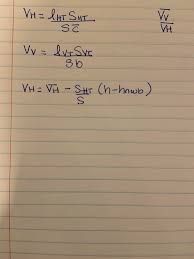 VH = lHT SHT / S c̄
V̄V / V̄H
VV = lVT SVT / S b
VH = V̄H - SHT / S (h-hnwb)